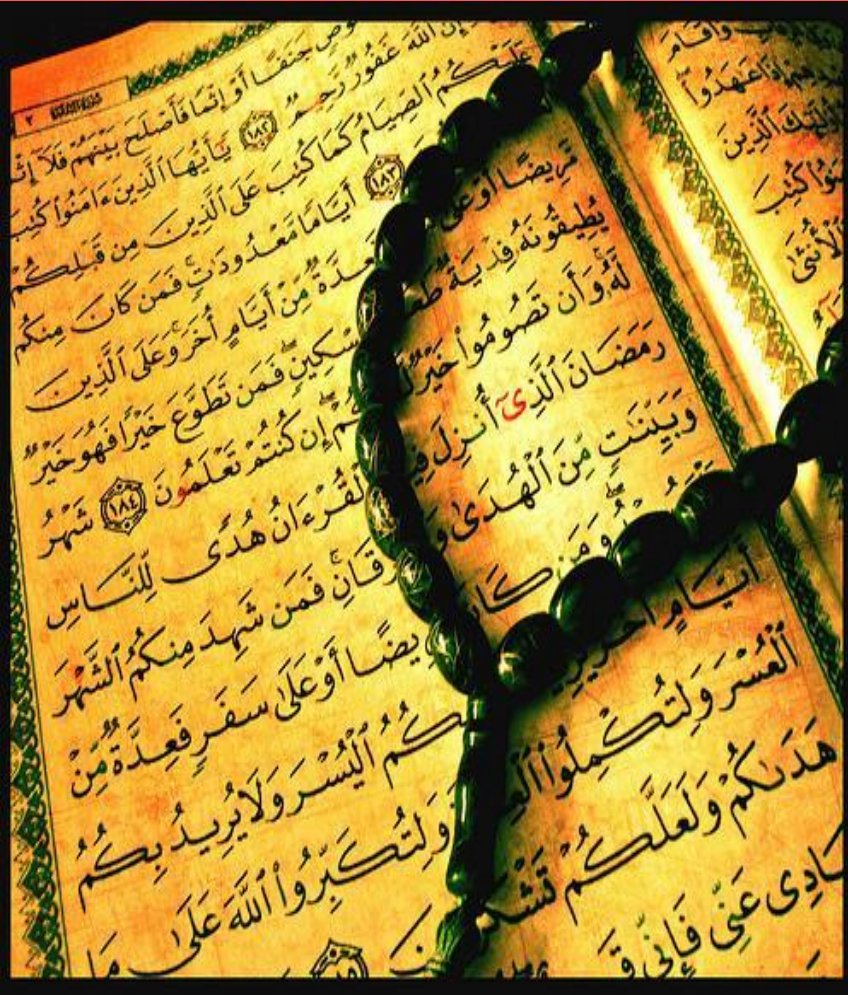 سُورَةُ البَقَرَةِ ٢
جَنَفًا أَوْ إِثْمًا فَأَصْلَحَ بَيْنَهُمْ فَلَآ
إِنَّ ٱللَّهَ غَفُورٌ رَّحِيمٌ ١٨٢ يَـٰٓأَيُّهَا ٱلَّذِينَ ءَامَنُوا۟ كُتِبَ
عَلَيْكُمُ ٱلصِّيَامُ كَمَا كُتِبَ عَلَى ٱلَّذِينَ مِن قَبْلِكُمْ
١٨٣ أَيَّامًا مَّعْدُودَٰتٍ ۚ فَمَن كَانَ مِنكُم
مَّرِيضًا أَوْ عَلَىٰ فَعِدَّةٌ مِّنْ أَيَّامٍ أُخَرَ ۚ وَعَلَى ٱلَّذِينَ
يُطِيقُونَهُۥ فِدْيَةٌ مِسْكِينٍ ۖ فَمَن تَطَوَّعَ خَيْرًا فَهُوَ خَيْرٌ
لَّهُۥ ۚ وَأَن تَصُومُوا۟ خَيْرٌ لَّكُمْ ۖ إِن كُنتُمْ تَعْلَمُونَ ١٨٤ شَهْرُ
رَمَضَانَ ٱلَّذِىٓ أُنزِلَ فِيهِ ٱلْقُرْءَانُ هُدًى لِّلنَّاسِ
وَبَيِّنَـٰتٍ مِّنَ ٱلْهُدَىٰ وَٱلْفُرْقَانِ ۚ فَمَن شَهِدَ مِنكُمُ ٱلشَّهْرَ
ۖ وَمَن كَانَ مَرِيضًا أَوْ عَلَىٰ سَفَرٍ فَعِدَّةٌ مِّنْ
أَيَّامٍ أُخَرَ ۗ يُرِيدُ بِكُمُ ٱلْيُسْرَ وَلَا يُرِيدُ بِكُمُ
ٱلْعُسْرَ وَلِتُكْمِلُوا۟ وَلِتُكَبِّرُوا۟ ٱللَّهَ عَلَىٰ مَا
هَدَىٰكُمْ وَلَعَلَّكُمْ تَشْكُرُونَ
عَنِّى فَإِنِّى
وَأَقَامَ
عَـٰهَدُوا۟
ٱلَّذِينَ
كُتِبَ